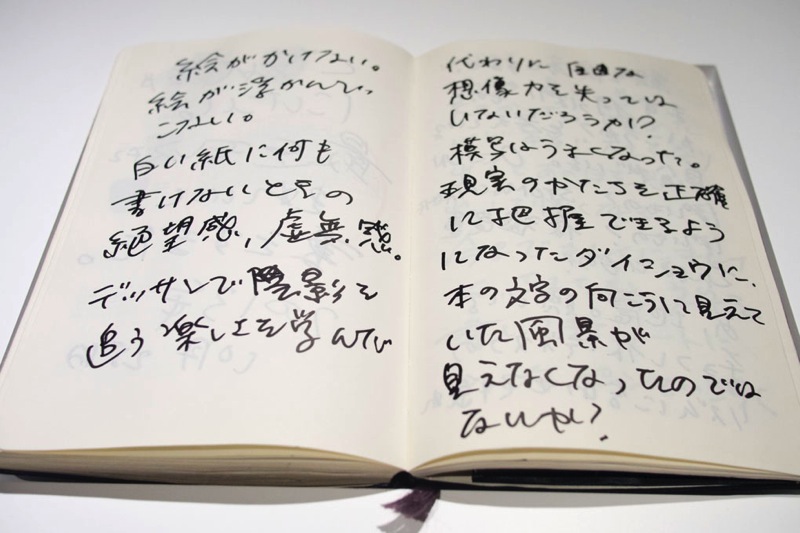 絵がかけない。
絵が浮かんでい
こない。
白い紙に何も
書けないときの
絶望感、虚無感。
デッサンで陰影を
追う楽しさを学んで
代わりに自由な
想像力を失っては
いないだろうか?
模写はうまくなった。
現実のかたちを正確
に把握できるよう
になったダイショウに、
本の文字の向こうに見えて
いた風景が
見えなくなったのでは
ないか?